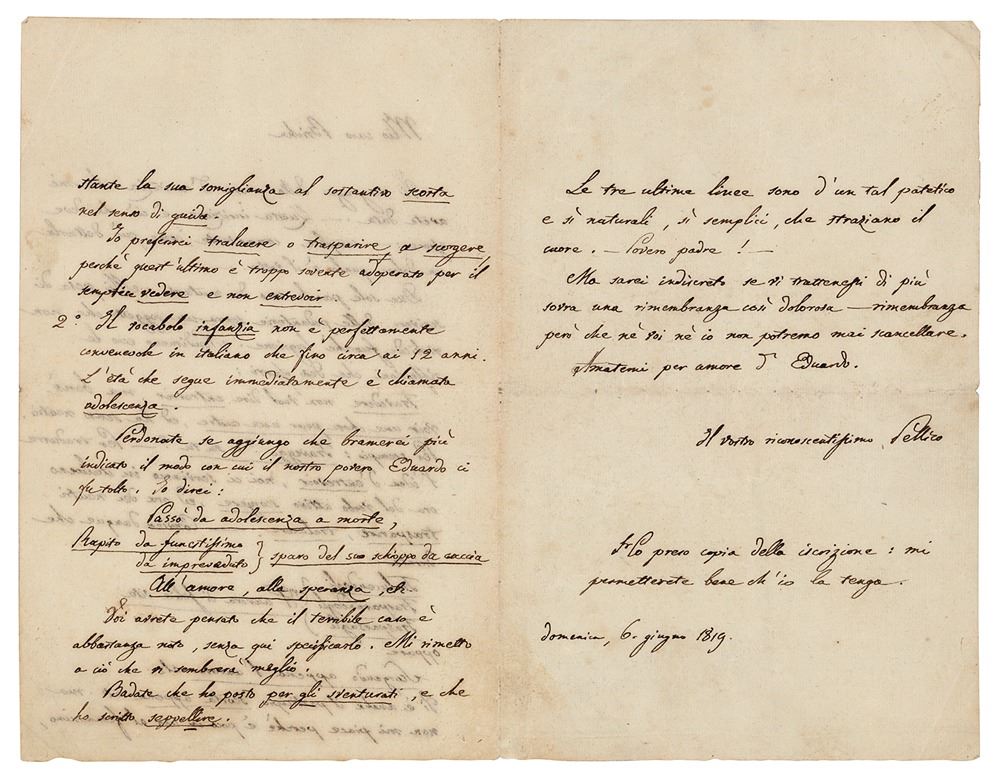 stante la sua somiglianza al sostantivo scorta
nel senso di guida.
Io preferirei tralucere o trasparire a scorgere,
perchè quest'ultimo è troppo sovente adoperato per il
semplice vedere e non entrevoir
2.° Il vocabolo infanzia non è perfettamente
convenevole in italiano che fino circa ai 12 anni.
L'età che segue immediatamente è chiamata
adolescenza.
Perdonate se aggiungo che bramerei più
indicato il modo con cui il nostro povero Eduardo ci
fu tolto. Io direi:
Passò da adolescenza a morte,
Rapito da funestissimo
da impreveduto } sparo del suo schioppo da caccia
All'amore, alla speranza, etc.
Voi avrete pensato che il terribile caso è
abbastanza noto, senza qui specificarlo. Mi rimetto
a ciò che vi sembrerà meglio.
Badate che ho posto per gli sventurati, e che
ho scritto seppellire.
Le tre ultime linee sono d'un tal patetico
e sì naturali, sì semplici, che straziano il
cuore. — Povero padre! —
Ma sarei indiscreto se vi trattenessi di più
sovra una rimembranza così dolorosa — rimembranza
però che nè voi nè io non potremo mai scancellare.
Amatemi per amore d' Eduardo.
Il vostro riconoscentissimo Pellico
Ho preso copia della iscrizione: mi
permetterete bene ch'io la tenga.
domenica, 6. giugno 1819.
Mio caro